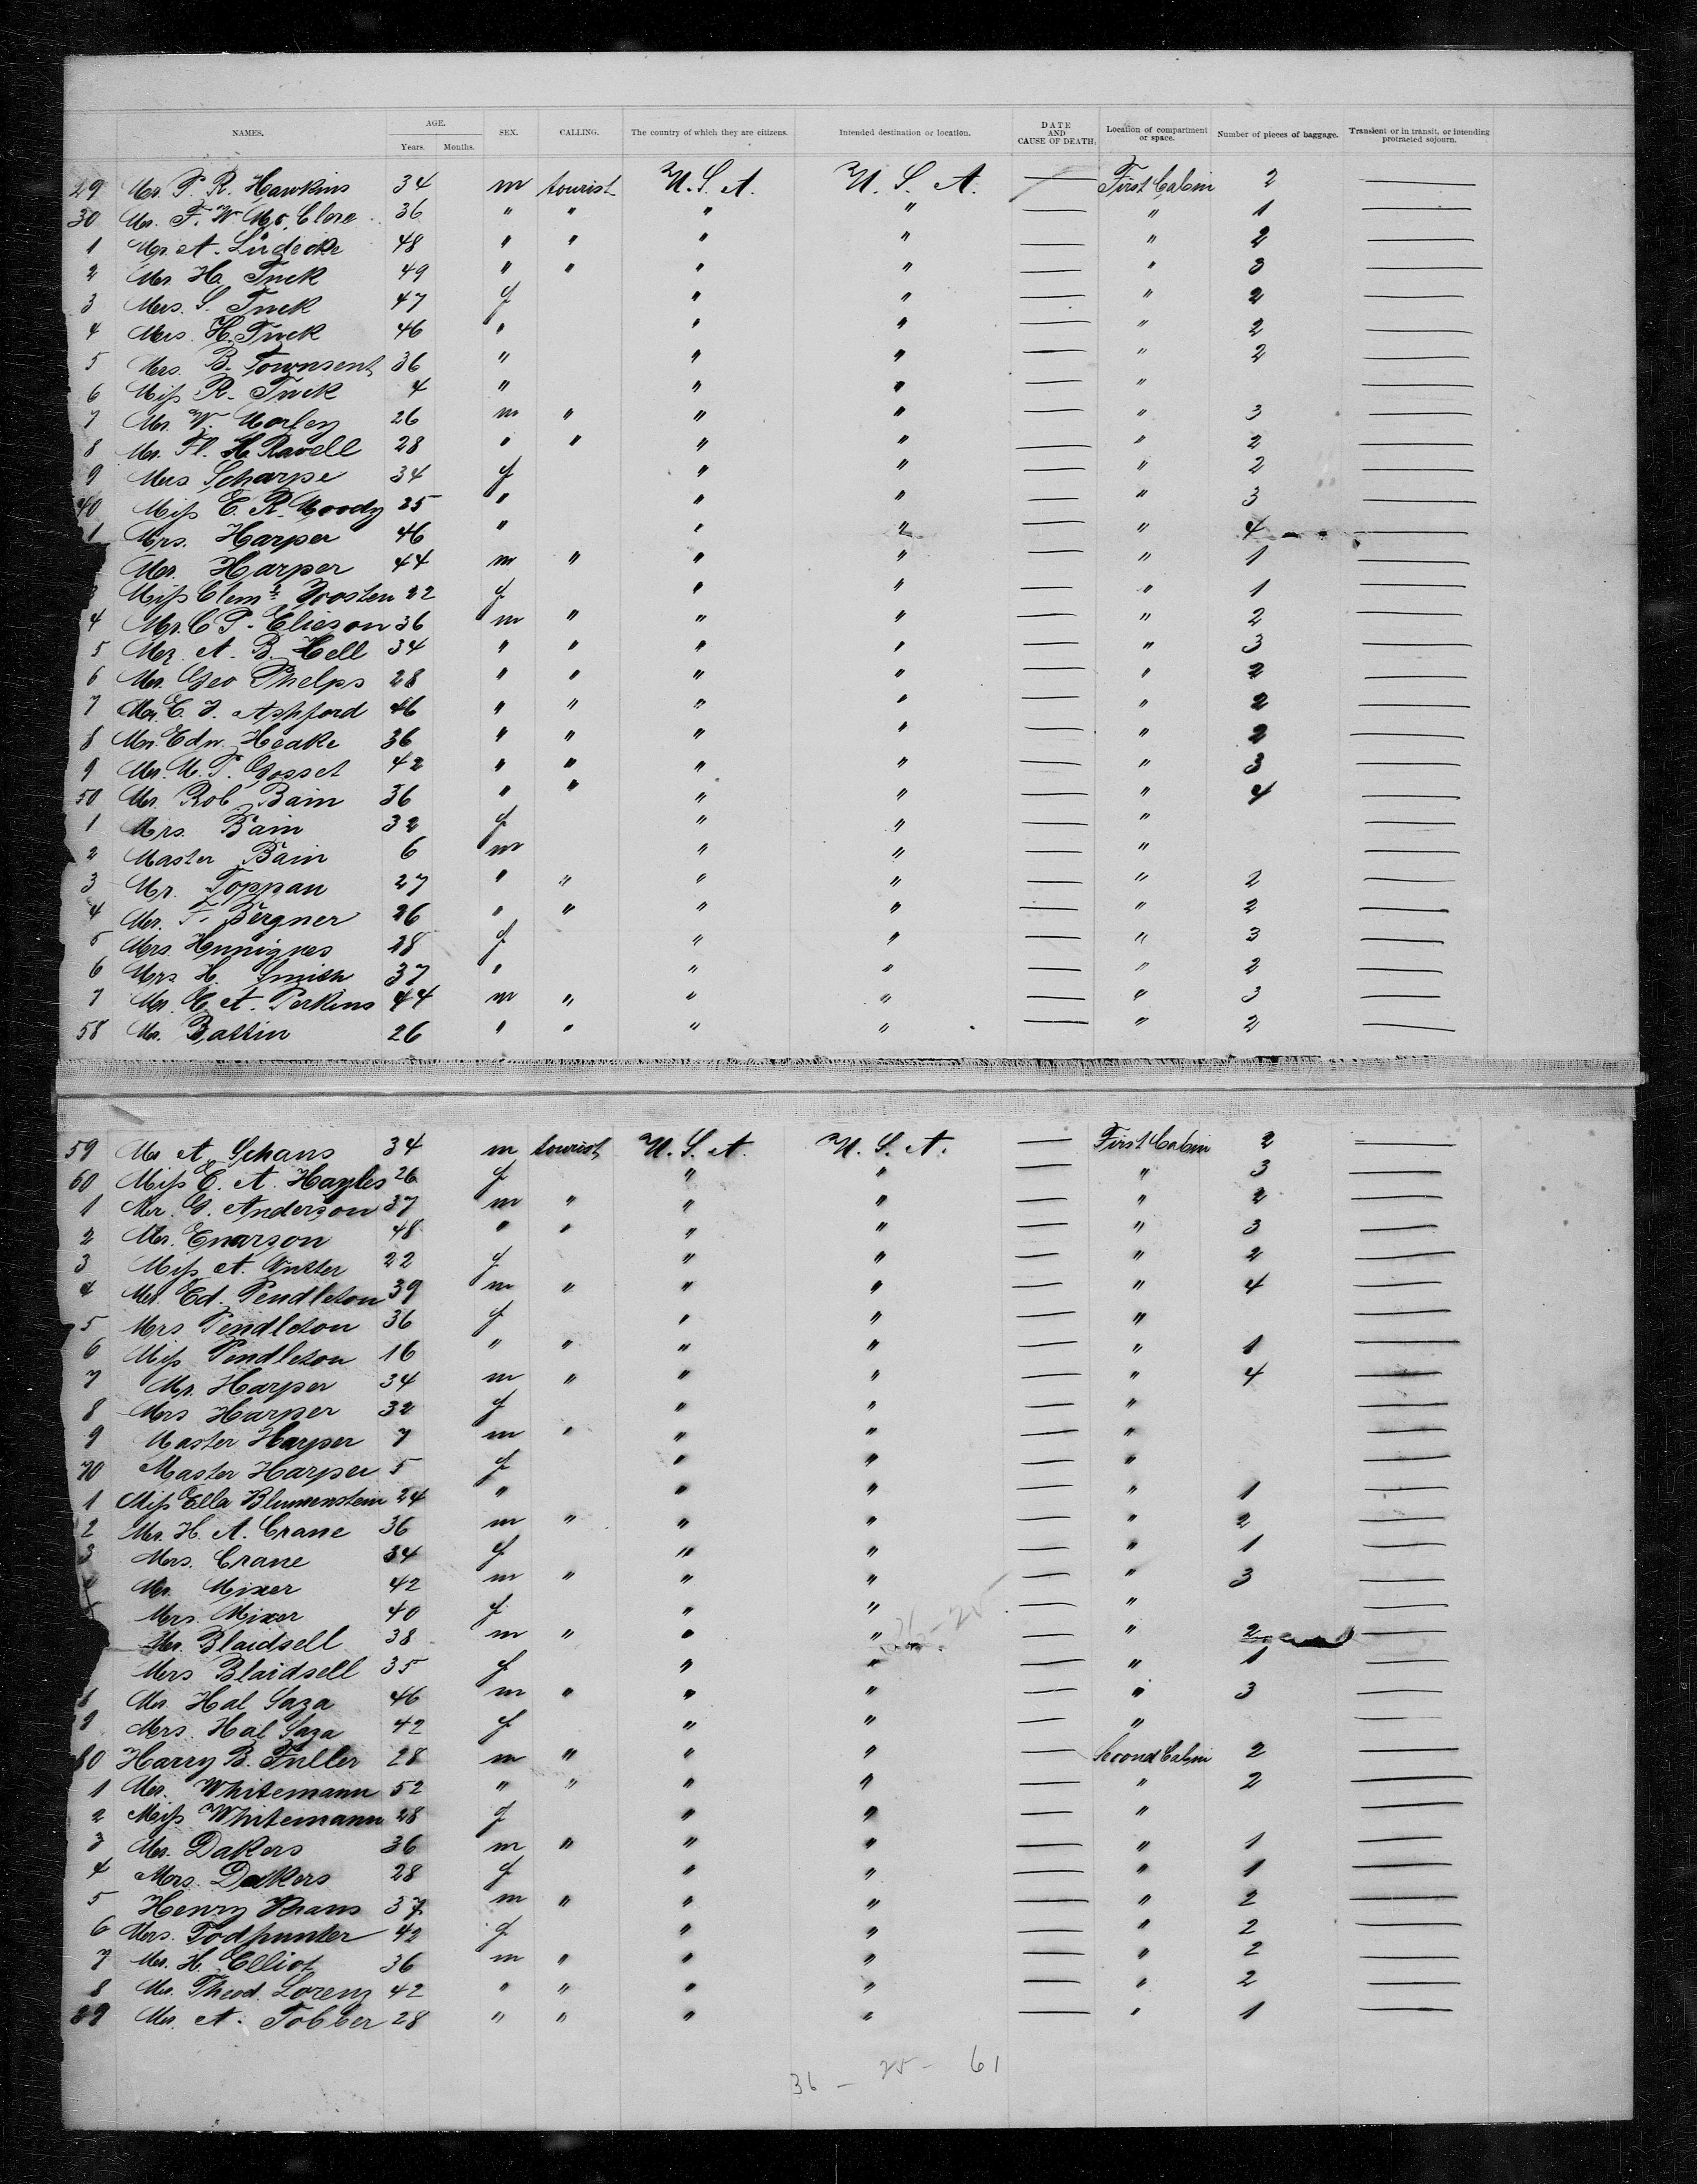 NAMES. AGE. Years. Months. SEX. CALLING. The country of which they are citizens. Intended destination or location. DATE AND CAUSE OF DEATH. Location of compartment or space. Number of pieces of baggage. Transient or in transit, or intending protracted sojourn.
29 Mr. P. R. Hawkins 34 m tourist U.S.A. U.S.A. — First Cabin 2 —
30 Mr. F. W. Mc Clore 36 " " " " — " 1 —
1 Mr. A. Lüdecke 48 " " " " — " 2 —
2 Mr. H. Tuck 49 " " " " — " 3 —
3 Mrs. S. Tuck 47 f " " — " 2 —
4 Mrs. H. Tuck 46 " " " — " 2 —
5 Mrs. B. Townsent 36 " " " — " 2 —
6 Miss R. Tuck 4 " " " — " —
7 Mr. W. Morley 26 m " " " — " 3 —
8 Mr. Fl. H. Ravell 28 " " " " — " 2 —
9 Mrs Scharpe 34 f " " — " 2 —
40 Miss E. R. Moody 35 " " " — " 3 —
1 Mrs. Harper 46 " " " — " 4 —
Mr. Harper 44 m " " " — " 1 —
3 Miss Clem. Joosten 22 f " " — " 1 —
4 Mr. C P. Elieson 36 m " " " — " 2 —
5 Mr. A. B. Hell 34 " " " " — " 3 —
6 Mr. Geo Phelps 28 " " " " — " 2 —
7 Mr. E. J. Ashford 46 " " " " — " 2 —
8 Mr. Edw. Heake 36 " " " " — " 2 —
9 Mr. M. P. Gosset 42 " " " " — " 3 —
50 Mr. Rob Bain 36 " " " " — " 4 —
1 Mrs. Bain 32 f " " — " —
2 Master Bain 6 m " " — " —
3 Mr. Toppan 27 " " " " — " 2 —
4 Mr. F. Bergner 26 " " " " — " 2 —
5 Mrs. Hennignes 28 f " " — " 3 —
6 Mrs. H. Smith 37 " " " — " 2 —
7 Mr. H. A. Perkins 44 m " " " — " 3 —
58 Mr. Battin 26 " " " " — " 2 —
59 Mr A. Schans 34 m tourist U.S.A. U.S.A. — First Cabin 2 —
60 Miss E. A. Hayles 26 f " " — " 3 —
1 Mr. G. Anderson 37 m " " " — " 2 —
2 Mr. Enarson 48 " " " " — " 3 —
3 Miss A. 22 f " " — " 2 —
4 Mr. Ed. Pendleton 39 m " " " — " 4 —
5 Mrs Pendleton 36 f " " — " —
6 Miss Pendleton 16 " " " " — " 1 —
7 Mr. Harper 34 m " " " — " 4 —
8 Mrs Harper 32 f " " — " —
9 Master Harper 7 m " " " — " —
70 Master Harper 5 f " " — " —
1 Miss Ella Blumenstein 24 " " " — " 1 —
2 Mr. H. A. Crane 36 m " " " — " 2 —
3 Mrs. Crane 34 f " " — " 1 —
4 Mr. Mixer 42 m " " " — " 3 —
5 Mrs. Mixer 40 f " " — " —
Mr. Blaidsell 38 m " " " — " 2 —
Mrs Blaidsell 35 f " " — " 1 —
8 Mr. Hal Saza 46 m " " " — " 3 —
9 Mrs. Hal Saza 42 f " " — " —
80 Harry B. Fuller 28 m " " " — Second Cabin 2 —
1 Mr. Whitemann 52 " " " " — " 2 —
2 Miss Whitemann 28 f " " — " —
3 Mr. Dakers 36 m " " " — " 1 —
4 Mrs. Dakers 28 f " " — " 1 —
5 Henry 37 m " " " — " 2 —
6 Mrs. Todhunter 42 f " " — " 2 —
7 Mr. H. Elliot 36 m " " " — " 2 —
8 Mr. Theod. Lorenz 42 " " " " — " 2 —
89 Mr. A. Tobber 28 " " " " — " 1 —
36 — 25 — 61